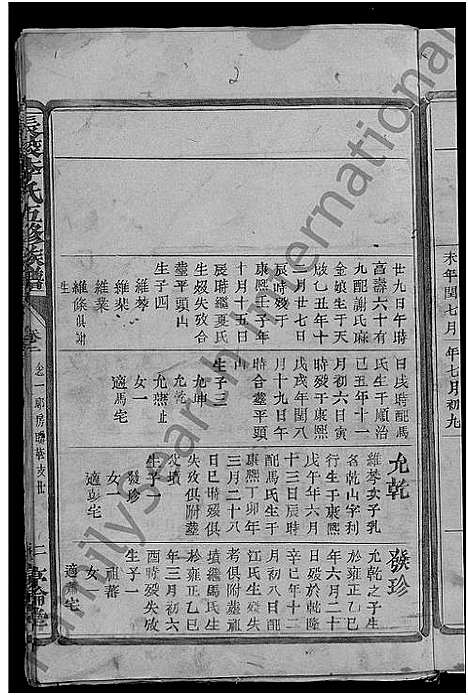 未年閏七月
年七月初九
廿九日午時
高壽六十有
九配謝氏麻
金娘生于天
啟乙丑年十
二月廿七日
辰時歿于
康熙壬子年
十月十五日
夏時繼夏氏
生歿失攷合
塟平頭山
生子四
維琴
維棐
維業
維條俱謝
生
日戌時配馬
氏生于順治
己丑年十一
月初六日寅
時歿于康熙
戊戌年閏八
月十九日午
時合塟平頭
山
生子三
允坤
允乾
允燕止
女一
適馬宅
允乾
維琴次子乳
名乾山字利
行生于康熙
戊午年六月
十三日辰時
配馬氏生于
康熙丁卯年
三月二十八
日巳時歿俱
失攷俱附塟
父墳
生子一
發珍
女一
適彭宅
發珍
允乾之子生
於雍正乙巳
年六月二十
日歿於乾隆
辛巳年十二
月初八日配
江氏生歿失
考俱附塟祖
墳繼馬氏生
於雍正乙巳
年三月初六
酉時歿失攷
生子一
祖蕃
女一
適蕭宅
李氏五修族譜
卷二
FamilySearch International
2